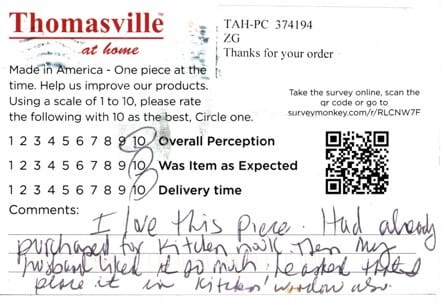 Thomasville™
at home
TAH-PC 374194
ZG
Thanks for your order
Made in America - One piece at the
time. Help us improve our products.
Using a scale of 1 to 10, please rate
the following with 10 as the best, Circle one.
Take the survey online, scan the
qr code or go to
surveymonkey.com/r/RLCNW7F
1 2 3 4 5 6 7 8 9 10 Overall Perception
1 2 3 4 5 6 7 8 9 10 Was Item as Expected
1 2 3 4 5 6 7 8 9 10 Delivery time
Comments:
I love this piece. Had already
purchased for kitchen nook then my
husband liked it so much, he asked
place it in kitchen window